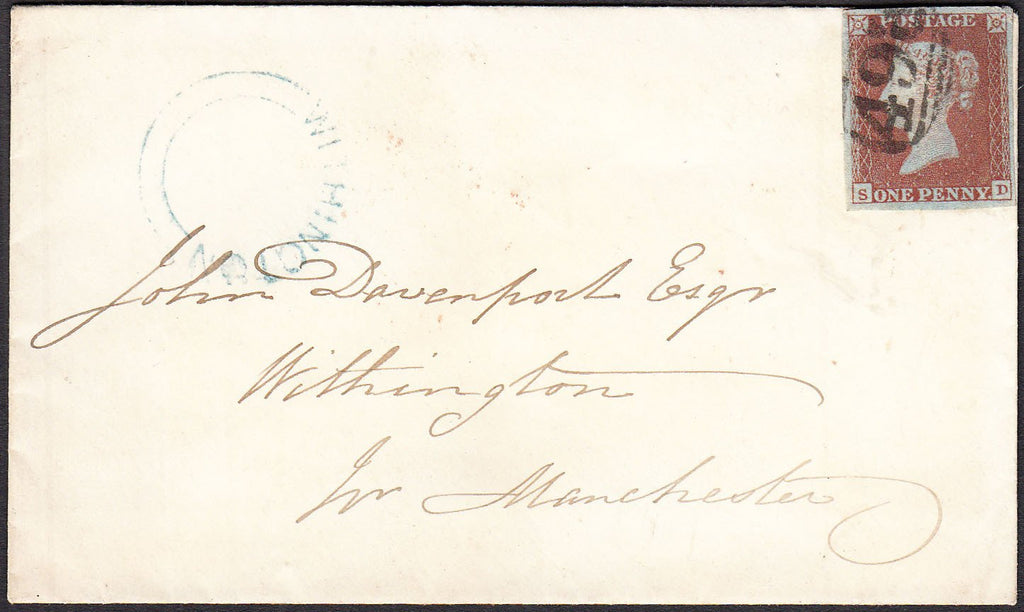 POSTAGE
498
S ONE PENNY D
WITHINGTON
John Davenport Esqr
Withington
Nr Manchester